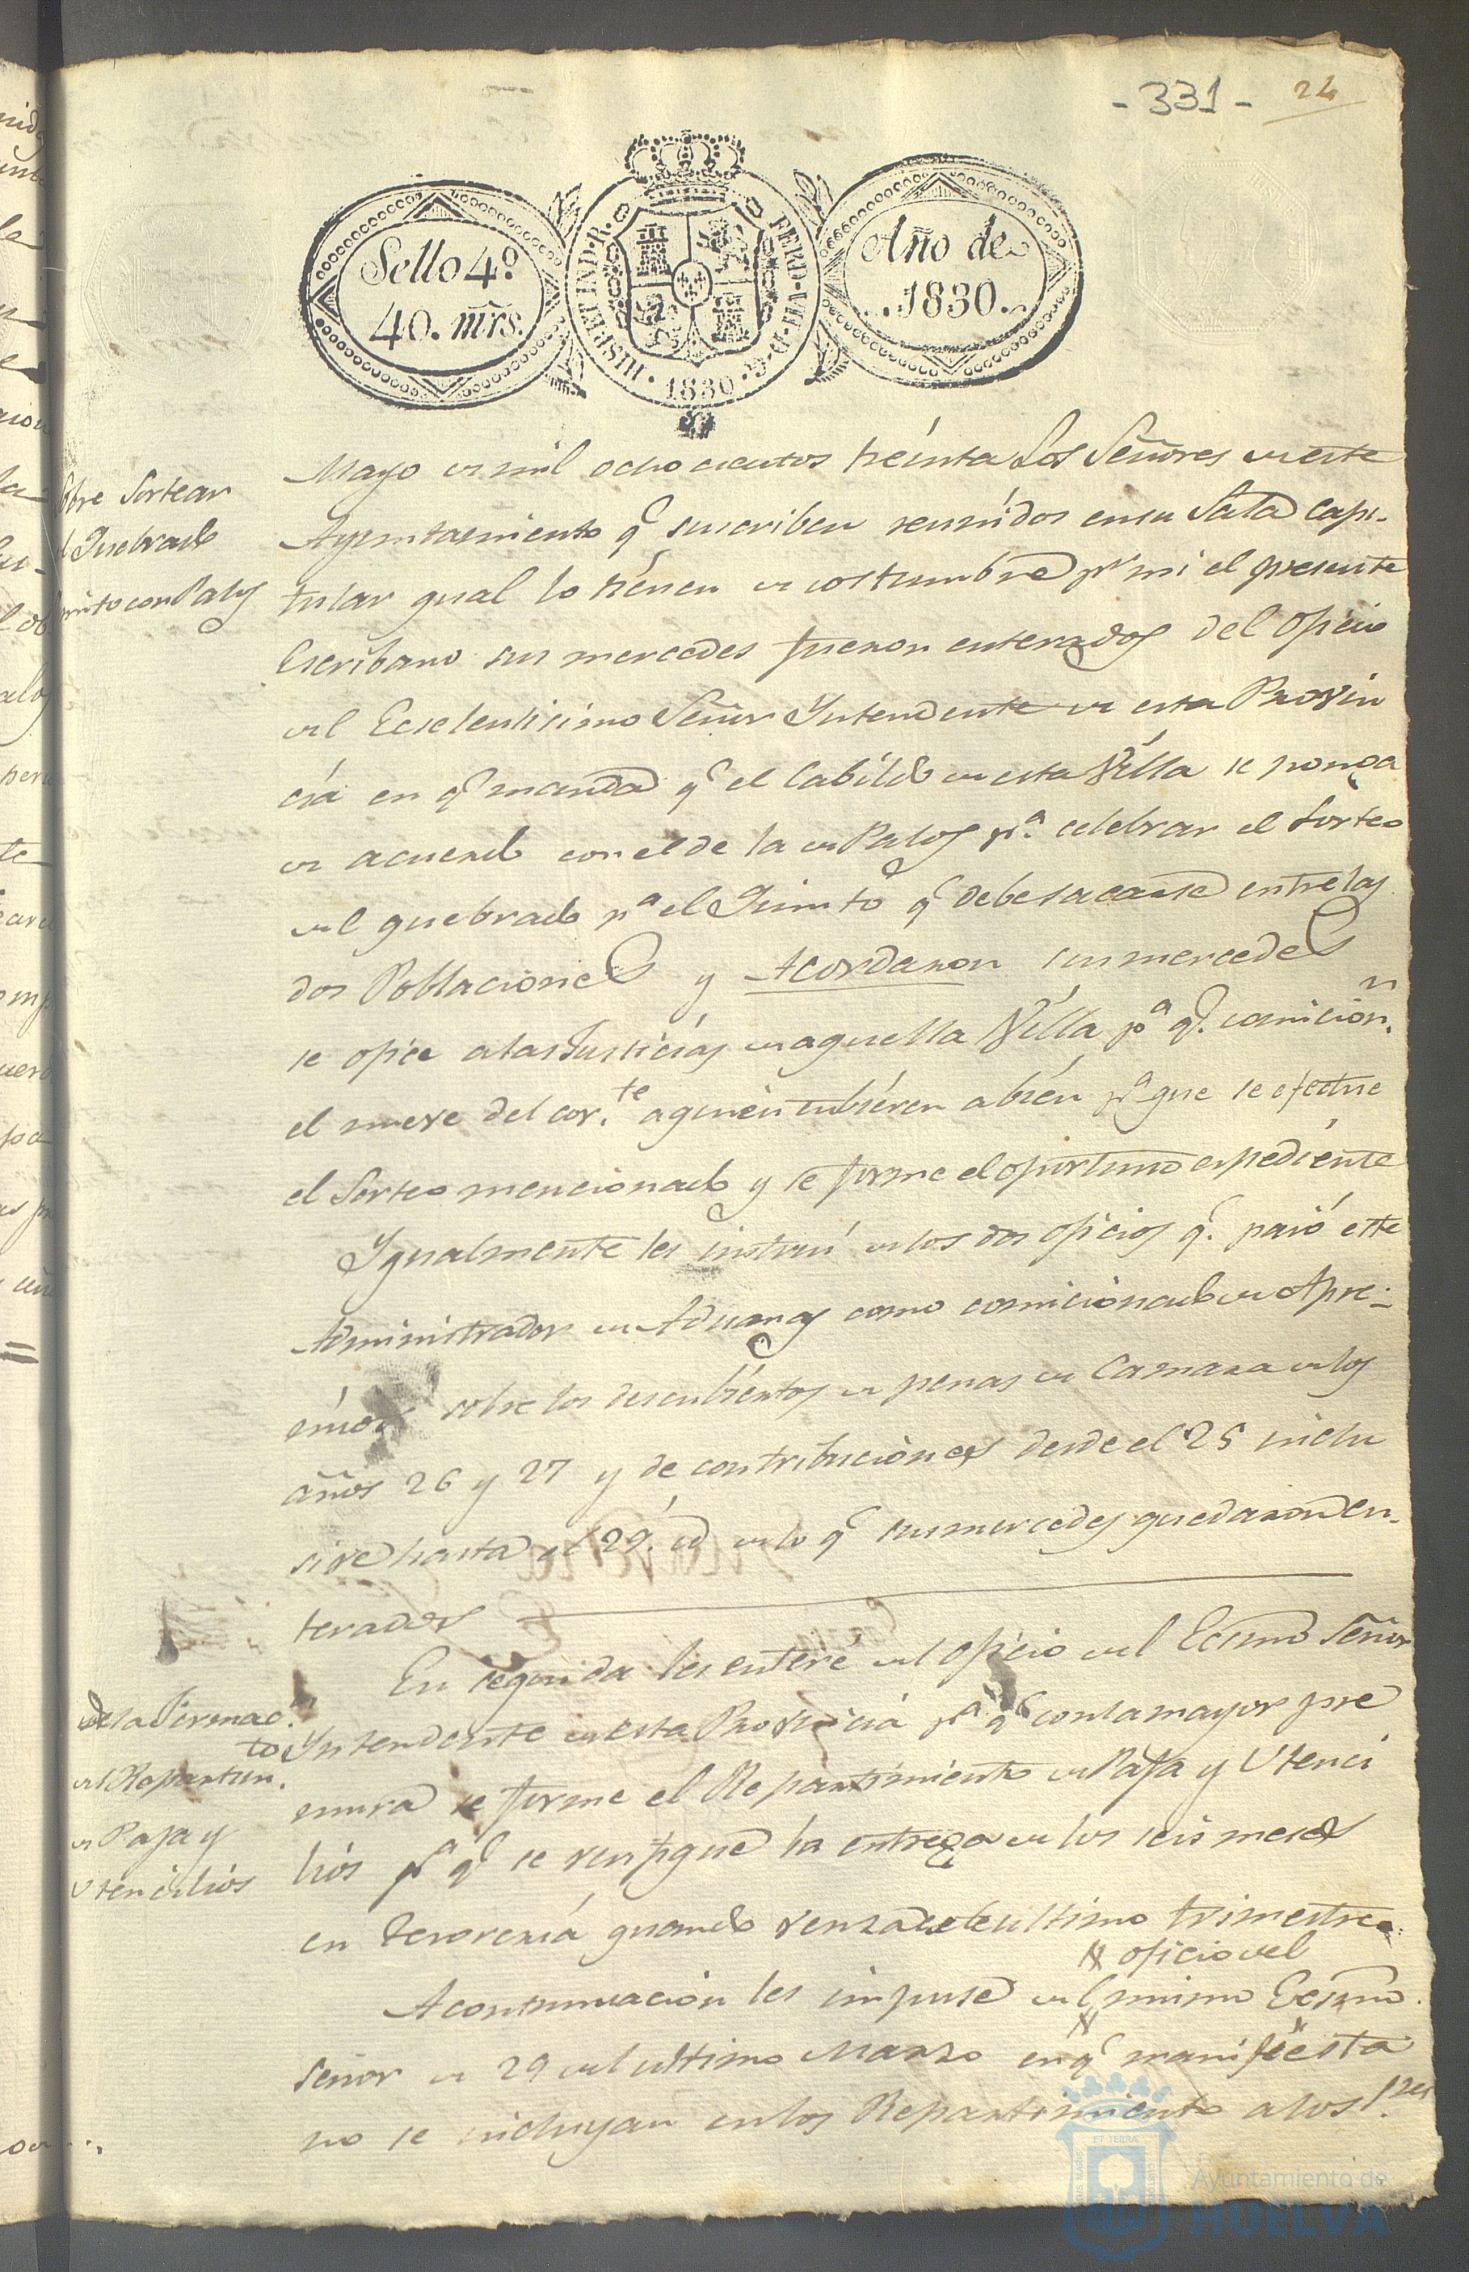 - 331 - 24
Sello 4º
40. mrs.
HISP. ET IND. R. FERD. VII. D. G. 1830
Año de
1830.
Mayo de mil ochocientos treinta Los Señores de este
Ayuntamiento q.e suscriben reunidos en su Sala Capi-
tular qual lo tienen de costumbre p.r mi el presente
Escribano sus mercedes fueron enterados del Oficio
del Ecselentisimo Señor Yntendente de esta Provin
cia en q.e manda q.e el Cabildo de esta Villa se ponga
de acuerdo con el de la de Palos p.a celebrar el Sorteo
del quebrado p.a el Quinto q.e debe sacarse entre las
dos Poblaciones y Acordaron sus mercedes
se oficie a las Justicias de aquella Villa p.a q.e comicion.n
el nueve del cor.te a quien tubieren a bien p.a que se efectue
el Sorteo mencionado y se forme el oportuno espediente
Ygualmente les instruí de los dos oficios q.e pasó este
Administrador de Aduanas como comicionado de Apre-
mios sobre los descubiertos de penas de Camara de los
años 26 y 27 y de contribuciones desde el 25 inclu
sive hasta el 29. id de lo q.e sus mercedes quedaron en-
terados
En seguida les enteré del oficio del Ecsmo Señor
Yntendente de esta Provincia p.a q.e con la mayor pre
mura se forme el Repartimiento de Paja y Utenci
lios p.a q.e se verifique la entrega de los seis meses
en Tesoreria quando venza este ultimo trimestre
oficio del
A continuacion les impuse del mismo Ecsmo.
Señor de 29 del ultimo Marzo en q.e manifiesta
no se incluyan en los Repartimiento a los S.res
Sobre Sortear
el Quebrado
Quinto con Palos
De la Formac.n
del Repartim.to
de Paja y
Utencilios
Ayuntamiento de
HUELVA